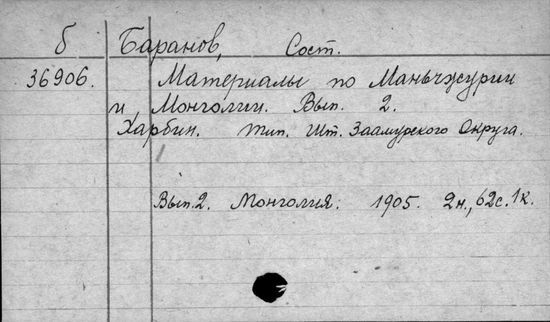 б Баранов, Сост.
36906. Материалы по Маньчжурии
и Монголии. Вып. 2.
Харбин. Тип. Шт. Заамурского Округа.
Вып. 2. Монголия. 1905. 2н., 62с. 1к.